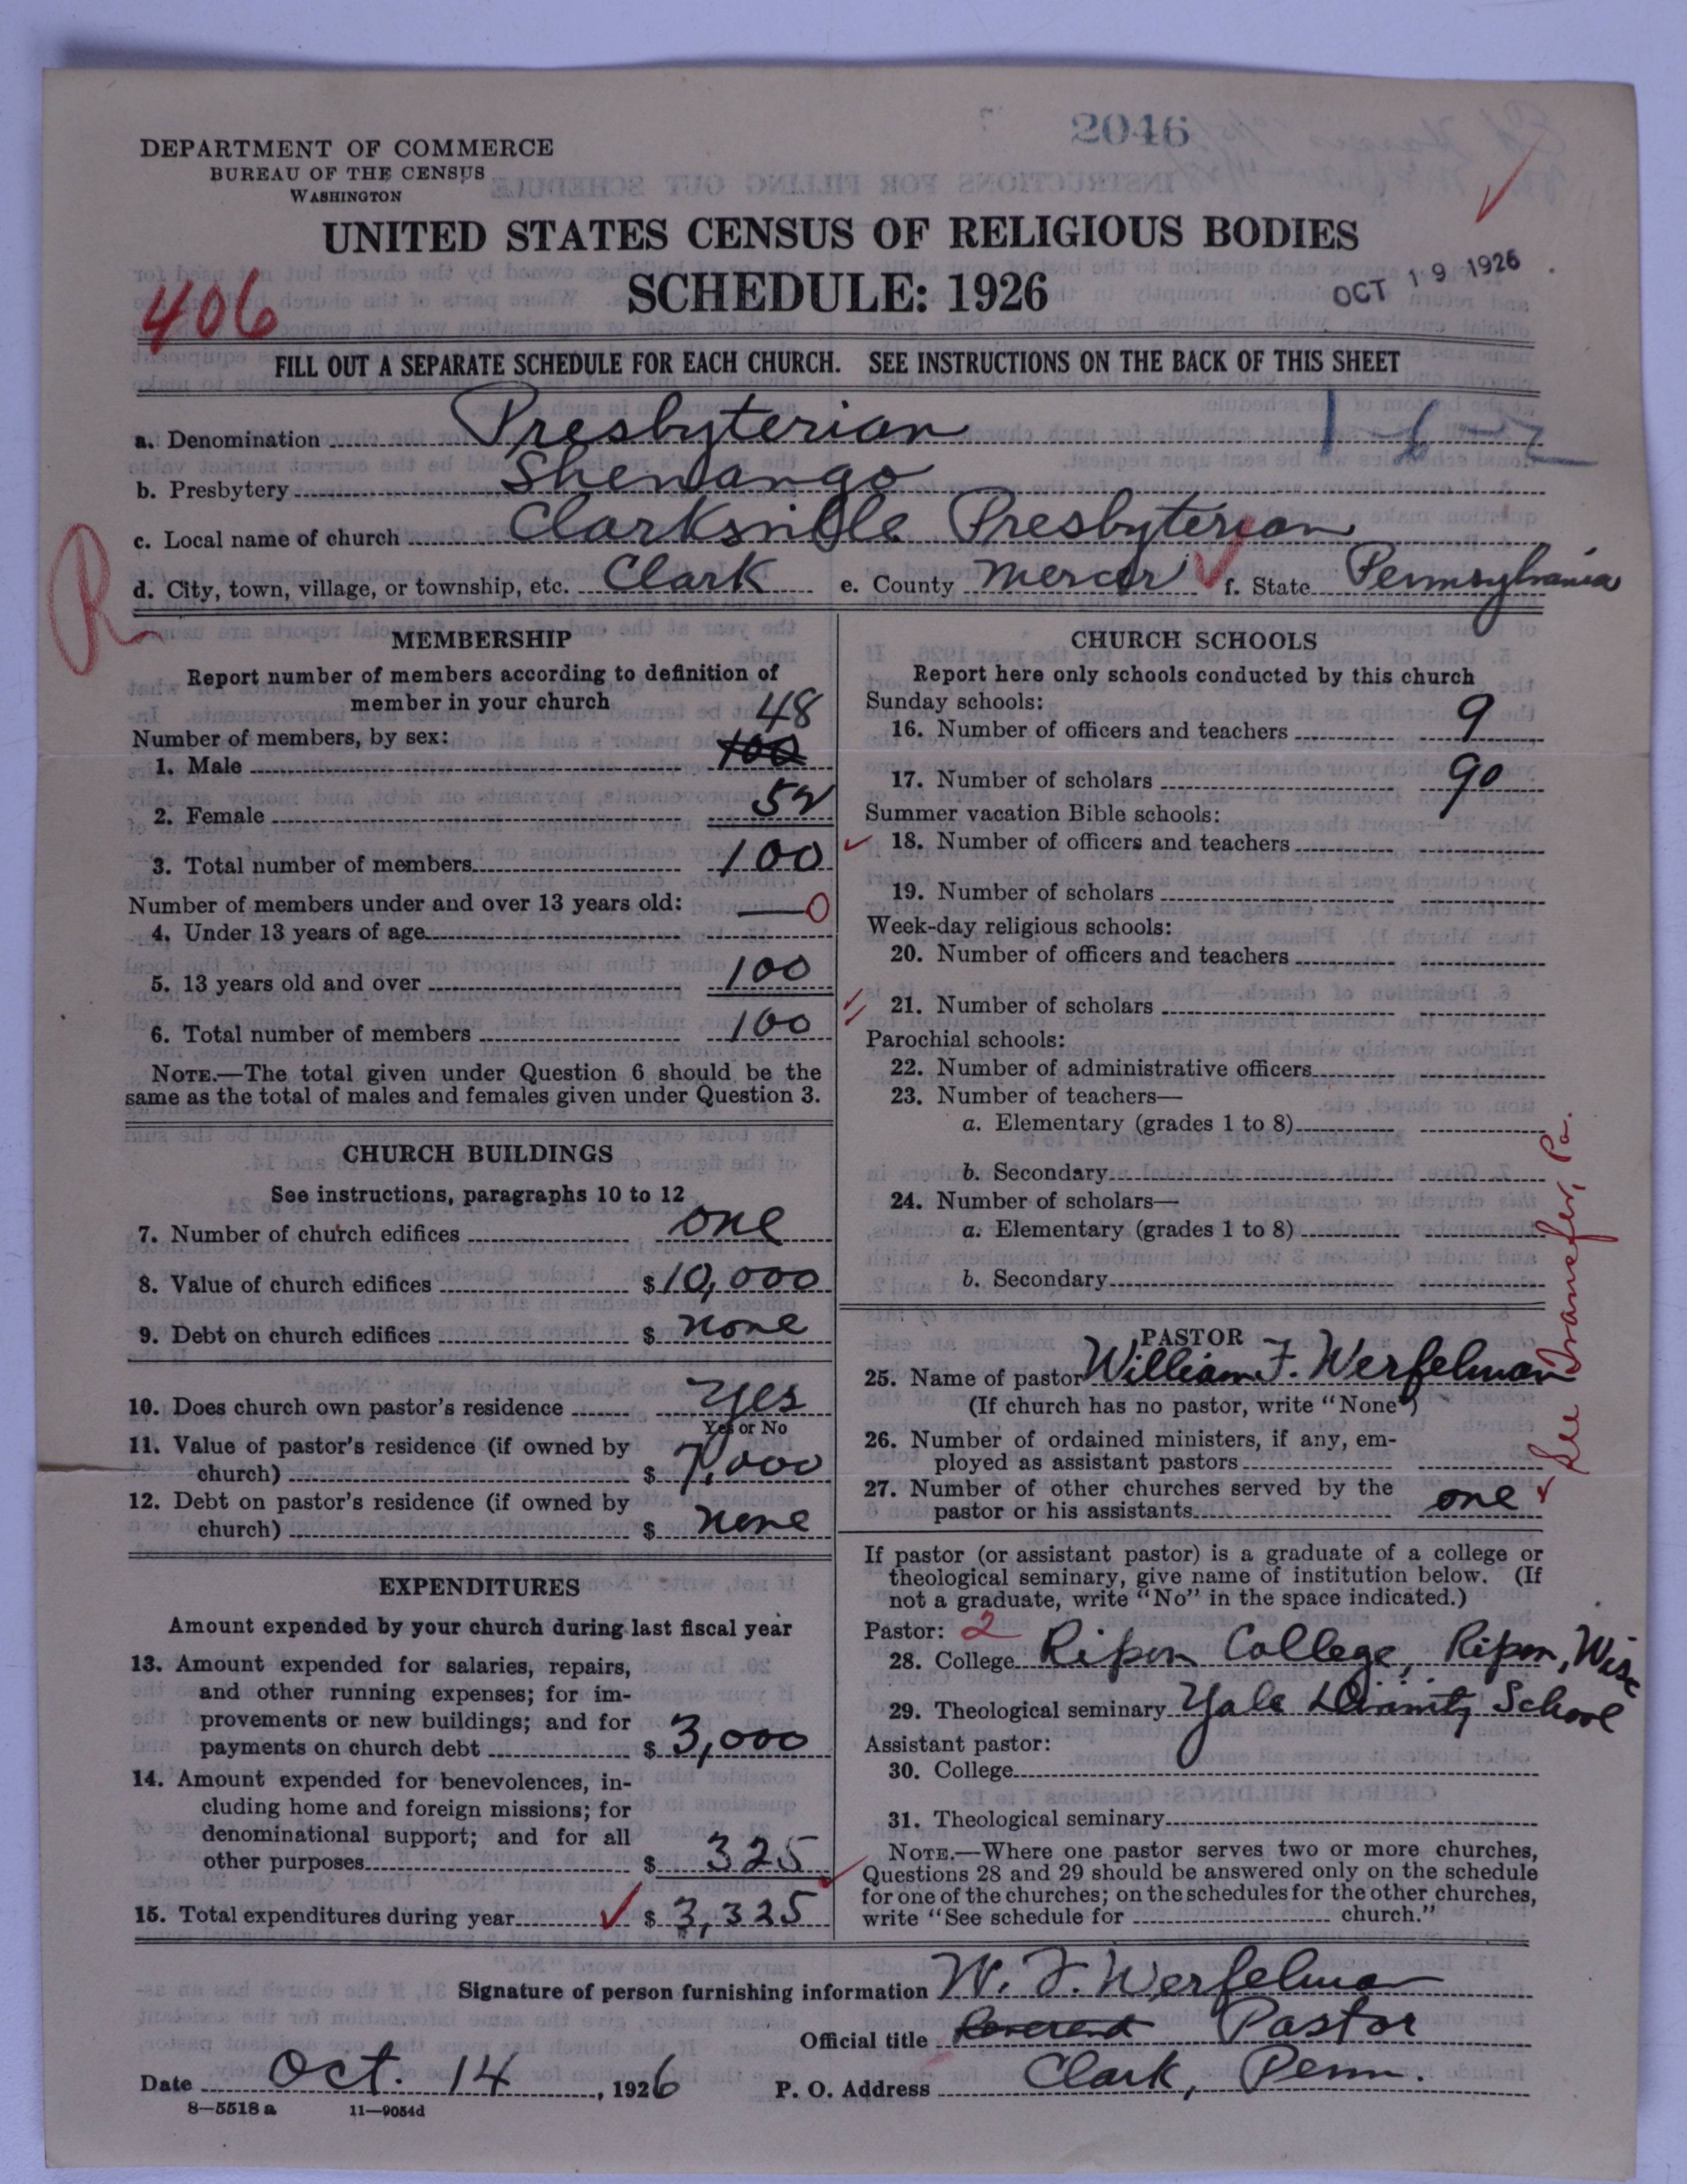 2046
DEPARTMENT OF COMMERCE
BUREAU OF THE CENSUS
WASHINGTON
UNITED STATES CENSUS OF RELIGIOUS BODIES
SCHEDULE: 1926
OCT 19 1926
406
FILL OUT A SEPARATE SCHEDULE FOR EACH CHURCH. SEE INSTRUCTIONS ON THE BACK OF THIS SHEET
a. Denomination Presbyterian
b. Presbytery Shenango
c. Local name of church Clarksville Presbyterian
R
d. City, town, village, or township, etc. Clark e. County Mercer f. State Pennsylvania
MEMBERSHIP
Report number of members according to definition of
member in your church
48
Number of members, by sex:
1. Male 100
2. Female 52
3. Total number of members 100
Number of members under and over 13 years old: 0
4. Under 13 years of age
5. 13 years old and over 100
6. Total number of members 100
NOTE.—The total given under Question 6 should be the
same as the total of males and females given under Question 3.
CHURCH BUILDINGS
See instructions, paragraphs 10 to 12
7. Number of church edifices one
8. Value of church edifices $ 10,000
9. Debt on church edifices $ none
10. Does church own pastor's residence yes
Yes or No
11. Value of pastor's residence (if owned by
church) $ 7,000
12. Debt on pastor's residence (if owned by
church) $ none
EXPENDITURES
Amount expended by your church during last fiscal year
13. Amount expended for salaries, repairs,
and other running expenses; for im-
provements or new buildings; and for
payments on church debt $ 3,000
14. Amount expended for benevolences, in-
cluding home and foreign missions; for
denominational support; and for all
other purposes $ 325
15. Total expenditures during year $ 3,325
CHURCH SCHOOLS
Report here only schools conducted by this church
Sunday schools:
16. Number of officers and teachers 9
17. Number of scholars 90
Summer vacation Bible schools:
18. Number of officers and teachers
19. Number of scholars
Week-day religious schools:
20. Number of officers and teachers
21. Number of scholars
Parochial schools:
22. Number of administrative officers
23. Number of teachers—
a. Elementary (grades 1 to 8)
b. Secondary
24. Number of scholars—
a. Elementary (grades 1 to 8)
b. Secondary
PASTOR
25. Name of pastor William F. Werfelman
(If church has no pastor, write "None")
26. Number of ordained ministers, if any, em-
ployed as assistant pastors
27. Number of other churches served by the
pastor or his assistants one
See Transfer, Pa.
If pastor (or assistant pastor) is a graduate of a college or
theological seminary, give name of institution below. (If
not a graduate, write "No" in the space indicated.)
Pastor: 2
28. College Ripon College, Ripon, Wisc
29. Theological seminary Yale Divinity School
Assistant pastor:
30. College
31. Theological seminary
NOTE.—Where one pastor serves two or more churches,
Questions 28 and 29 should be answered only on the schedule
for one of the churches; on the schedules for the other churches,
write "See schedule for church."
Signature of person furnishing information W. F. Werfelman
Official title Reverend Pastor
Date Oct. 14, 1926 P. O. Address Clark, Penn.
8—5518 a 11—9054d